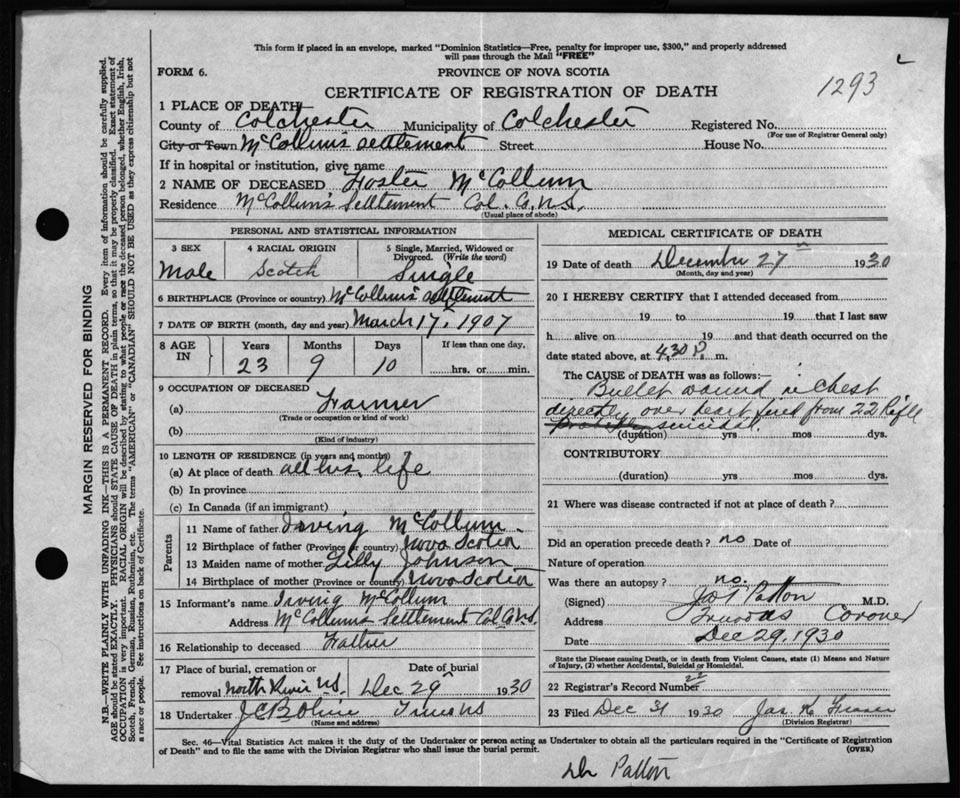 This form if placed in an envelope, marked "Dominion Statistics—Free, penalty for improper use, $300," and properly addressed
will pass through the Mail "FREE"
FORM 6.
PROVINCE OF NOVA SCOTIA
CERTIFICATE OF REGISTRATION OF DEATH
1293
1 PLACE OF DEATH—
County of Colchester Municipality of Colchester Registered No.
(For use of Registrar General only)
City or Town McCollum's Settlement Street House No.
If in hospital or institution, give name
2 NAME OF DECEASED Foster McCollum
Residence McCollum's Settlement Col. Co. N.S.
(Usual place of abode)
PERSONAL AND STATISTICAL INFORMATION
3 SEX
Male
4 RACIAL ORIGIN
Scotch
5 Single, Married, Widowed or
Divorced. (Write the word)
Single
6 BIRTHPLACE (Province or country) McCollum's Settlement
7 DATE OF BIRTH (month, day and year) March 17, 1907
8 AGE
IN
Years Months Days If less than one day,
23 9 10 hrs. or min.
9 OCCUPATION OF DECEASED
(a) Farmer
(Trade or occupation or kind of work)
(b)
(Kind of industry)
10 LENGTH OF RESIDENCE (in years and months)
(a) At place of death all his life
(b) In province
(c) In Canada (if an immigrant)
Parents
11 Name of father Irving McCollum
12 Birthplace of father (Province or country) Nova Scotia
13 Maiden name of mother Lilly Johnson
14 Birthplace of mother (Province or country) Nova Scotia
15 Informant's name Irving McCollum
Address McCollum's Settlement Col Co N.S.
16 Relationship to deceased Father
17 Place of burial, cremation or Date of burial
removal North River N.S. Dec 29 1930
18 Undertaker Truro NS
(Name and address)
MEDICAL CERTIFICATE OF DEATH
19 Date of death December 27 1930
(Month, day and year)
20 I HEREBY CERTIFY that I attended deceased from
19 to 19 that I last saw
h alive on 19 and that death occurred on the
date stated above, at 4.30 P. m.
The CAUSE of DEATH was as follows:—
Bullet wound in chest
directly over heart fired from 22 Rifle
suicidal.
(duration) yrs mos dys.
CONTRIBUTORY
(duration) yrs mos dys.
21 Where was disease contracted if not at place of death?
Did an operation precede death? no Date of
Nature of operation
Was there an autopsy? no.
(Signed) Patton M.D.
Address Coroner
Date Dec 29, 1930
State the Disease causing Death, or in death from Violent Causes, state (1) Means and Nature
of Injury, (2) whether Accidental, Suicidal or Homicidal.
22 Registrar's Record Number 22
23 Filed Dec 31 1930 Jas. K. Fraser
(Division Registrar)
Sec. 46—Vital Statistics Act makes it the duty of the Undertaker or person acting as Undertaker to obtain all the particulars required in the "Certificate of Registration
of Death" and to file the same with the Division Registrar who shall issue the burial permit.
(OVER)
Dr Patton
MARGIN RESERVED FOR BINDING
N.B.—WRITE PLAINLY WITH UNFADING INK—THIS IS A PERMANENT RECORD. Every item of information should be carefully supplied.
AGE should be stated EXACTLY. PHYSICIANS should STATE CAUSE OF DEATH in plain terms, so that it may be properly classified. Exact statement of
OCCUPATION is very important. RACIAL ORIGIN will be described by stating to what people or race the deceased person belonged, whether English, Irish,
Scotch, French, German, Russian, Ruthenian, etc. The terms "AMERICAN" or "CANADIAN" SHOULD NOT BE USED as they express citizenship but not
a race or people. See instructions on back of Certificate.